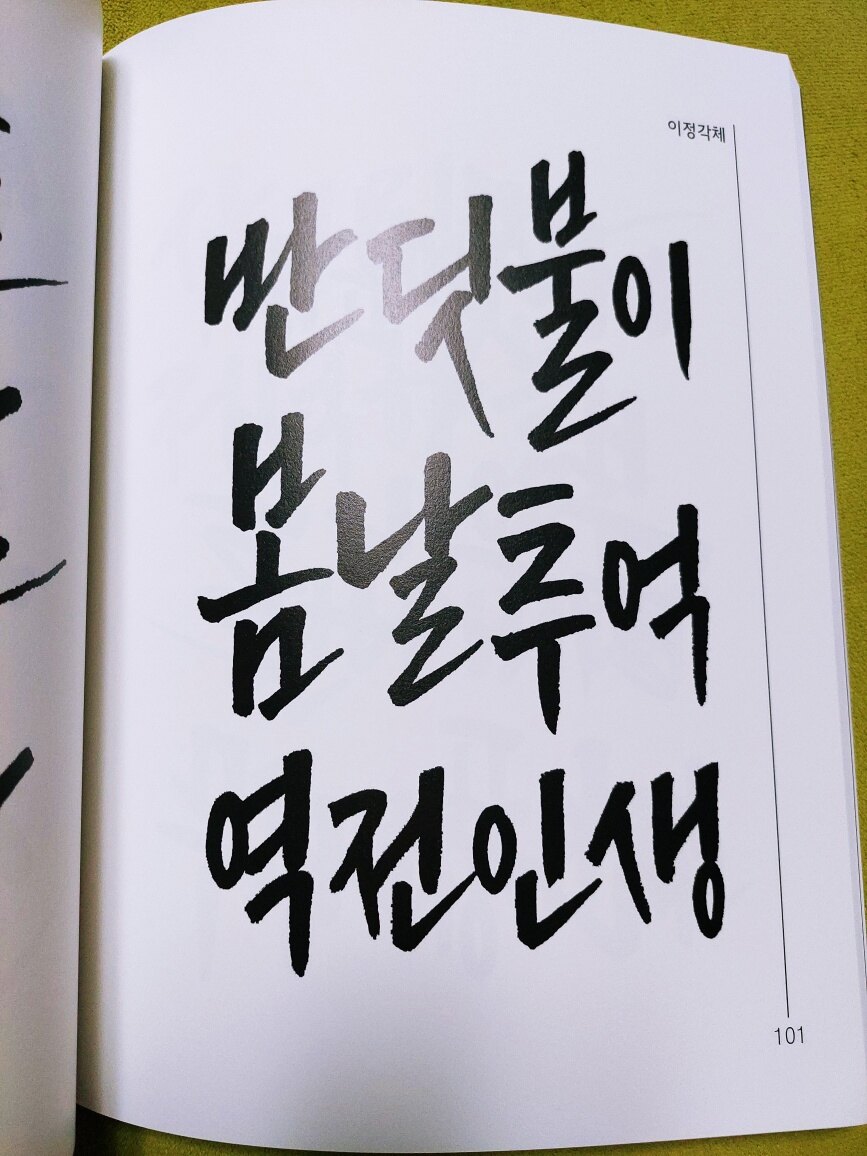 이정각체
반딧불이
봄날투역
역전인생
101